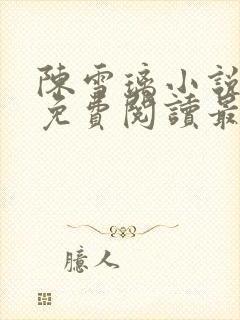 陳雪璃小說
免費閱讀最
臆人